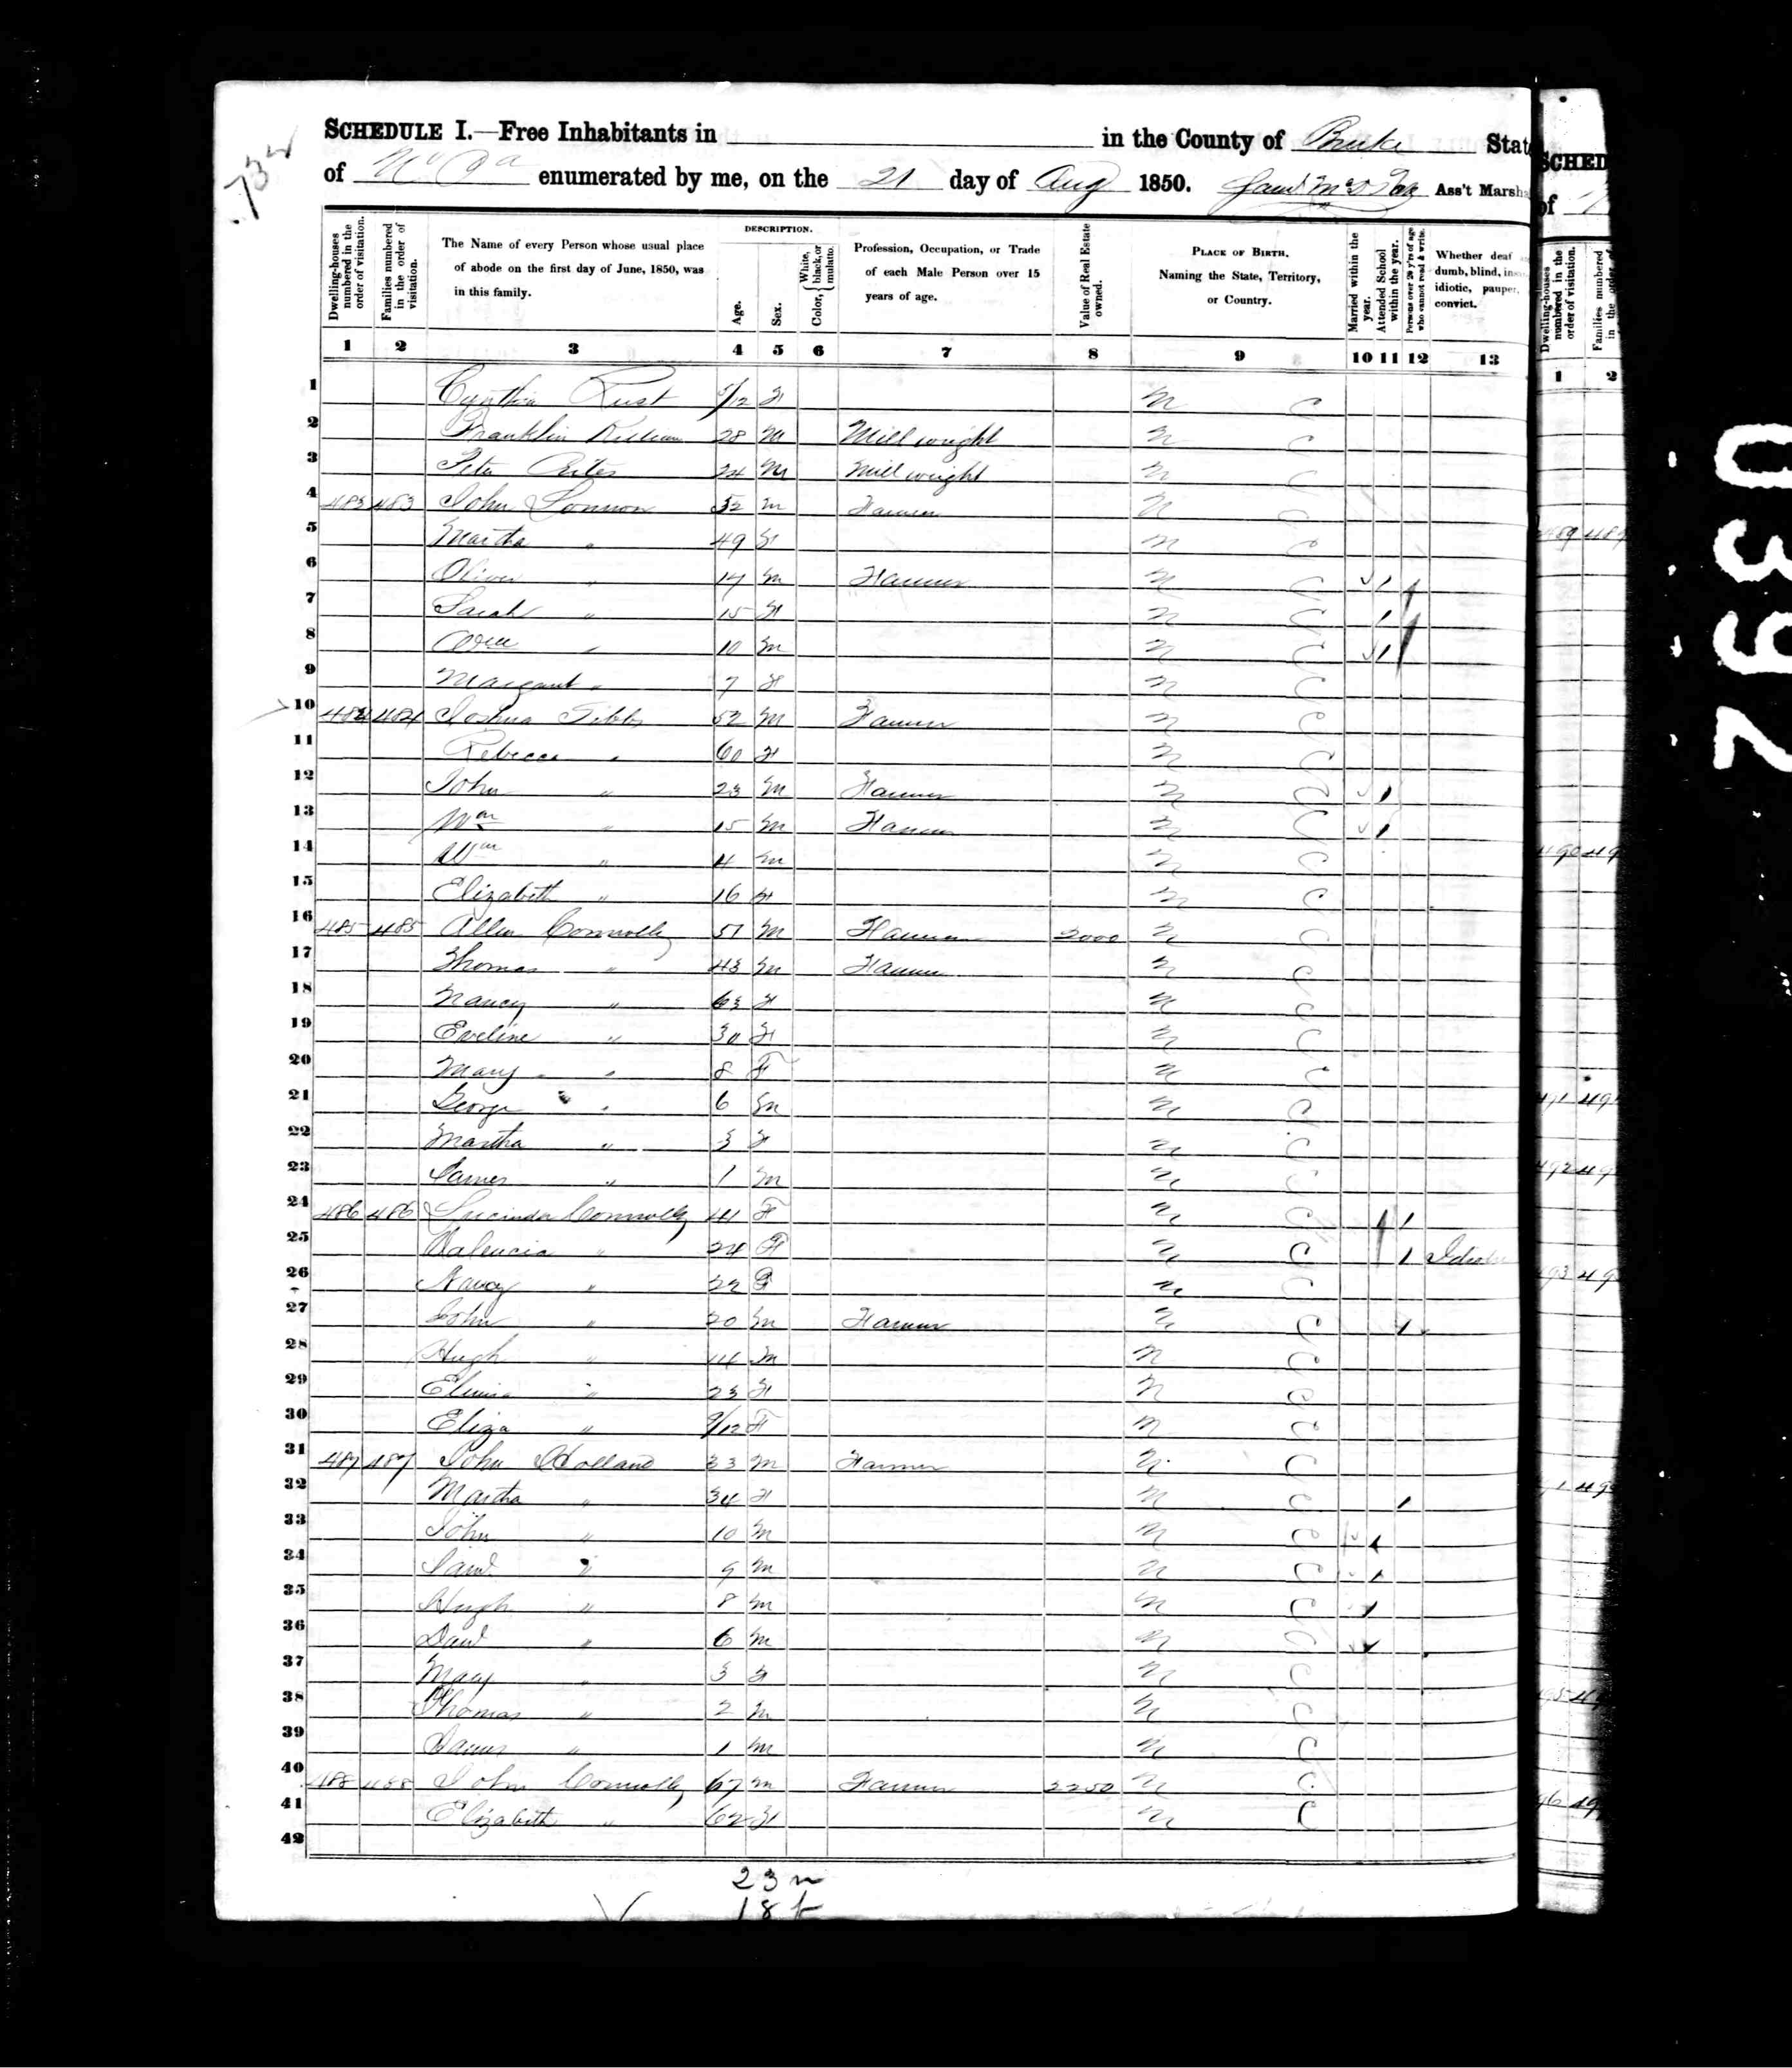 732
SCHEDULE I.—Free Inhabitants in in the County of Burke State
of No Ca enumerated by me, on the 21 day of Aug 1850. Ass't Marsh
Dwelling-houses numbered in the order of visitation.
Families numbered in the order of visitation.
The Name of every Person whose usual place of abode on the first day of June, 1850, was in this family.
DESCRIPTION.
Age.
Sex.
Color, White, black, or mulatto.
Profession, Occupation, or Trade of each Male Person over 15 years of age.
Value of Real Estate owned.
PLACE OF BIRTH, Naming the State, Territory, or Country.
Married within the year.
Attended School within the year.
Persons over 20 y'rs of age who cannot read & write.
Whether deaf dumb, blind, idiotic, pauper, convict.
1 2 3 4 5 6 7 8 9 10 11 12 13
1 Cynthia Rust 5/12 F N C
2 Franklin 28 M Mill wright N C
3 Peter 24 M Mill wright N C
4 483 483 John 52 M Farmer N C
5 Martha " 49 F N C
6 Oliver " 17 M Farmer N C
7 Sarah " 15 F N C
8 " 10 M N C
9 Margaret " 7 F N C
10 484 484 Joshua 52 M Farmer N C
11 Rebecca " 60 F N C
12 John " 23 M Farmer N C
13 Wm " 15 M Farmer N C
14 Wm " 4 M N C
15 Elizabeth " 16 F N C
16 485 485 Allen Connolly 51 M Farmer 2000 N C
17 Thomas " 43 M Farmer N C
18 Nancy " 63 F N C
19 Eveline " 30 F N C
20 Mary " 8 F N C
21 George " 6 M N C
22 Martha " 3 F N C
23 James " 1 M N C
24 486 486 Lucinda Connolly 41 F N C
25 Valencia " 24 F N C
26 Nancy " 22 F N C
27 John " 20 M Farmer N C
28 Hugh " 14 M N C
29 " 23 F N C
30 Eliza " 9/12 F N C
31 487 487 John Holland 33 M Farmer N C
32 Martha " 34 F N C
33 John " 10 M N C
34 Saml " 9 M N C
35 Hugh " 8 M N C
36 " 6 M N C
37 Mary " 3 F N C
38 Thomas " 2 M N C
39 James " 1 M N C
40 488 488 John Connolly 67 M Farmer 2250 N C
41 Elizabeth " 62 F N C
42
23 m
18 f
SCHED
of
Dwelling-houses numbered in the order of visitation.
Families numbered in the order of
1 2
0392